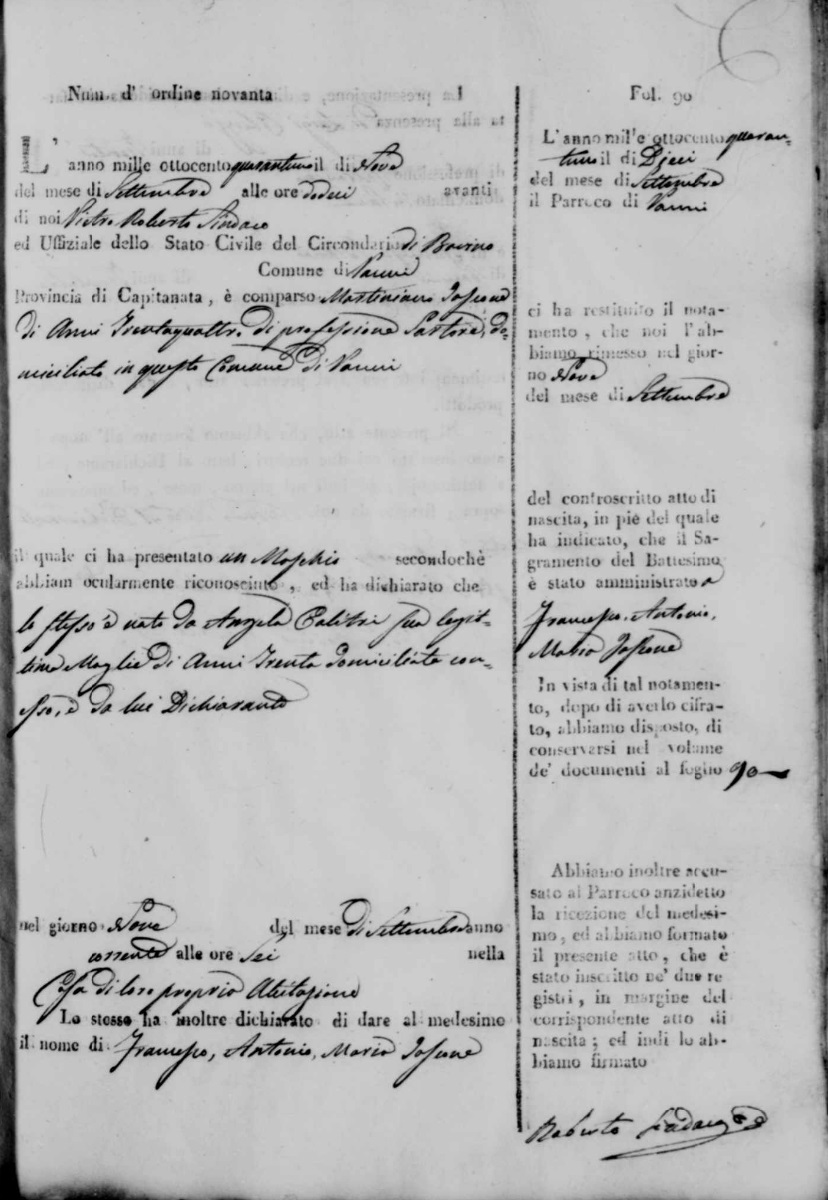 Num. d' ordine novanta
L' anno mille ottocento quarantuno il dì Nove
del mese di Settembre alle ore dodeci avanti
di noi Pietro Roberto Sindaco
ed Uffiziale dello Stato Civile del Circondario di Bovino
Comune di Panni
Provincia di Capitanata, è comparso Jossione
di Anni Trentaquattro di professione Sartore, do-
miciliato in questo Comune di Panni
il quale ci ha presentato un Maschio secondochè
abbiam ocularmente riconosciuto, ed ha dichiarato che
lo stesso è nato da Angela Calitri sua legit-
tima Moglie di Anni Trenta domiciliata con
esso, e da lui Dichiarante
nel giorno Nove del mese di Settembre anno
corrente alle ore Sei nella
Casa di loro propria Abitazione
Lo stesso ha inoltre dichiarato di dare al medesimo
il nome di Francesco, Antonio, Maria Jossione
Fol. 90
L'anno mille ottocento quaran-
tuno il dì Dieci
del mese di Settembre
il Parroco di Panni
ci ha restituito il nota-
mento, che noi l'ab-
biamo rimesso nel gior-
no Nove
del mese di Settembre
del controscritto atto di
nascita, in piè del quale
ha indicato, che il Sa-
gramento del Battesimo
è stato amministrato a
Francesco, Antonio,
Maria Jossione
In vista di tal notamen-
to, dopo di averlo cifra-
to, abbiamo disposto, di
conservarsi nel volume
de' documenti al foglio 90
Abbiamo inoltre accu-
sato al Parroco anzidetto
la ricezione del medesi-
mo, ed abbiamo formato
il presente atto, che è
stato inscritto ne' due re
gistri, in margine del
corrispondente atto di
nascita; ed indi lo ab-
biamo firmato
Roberto Sindaco